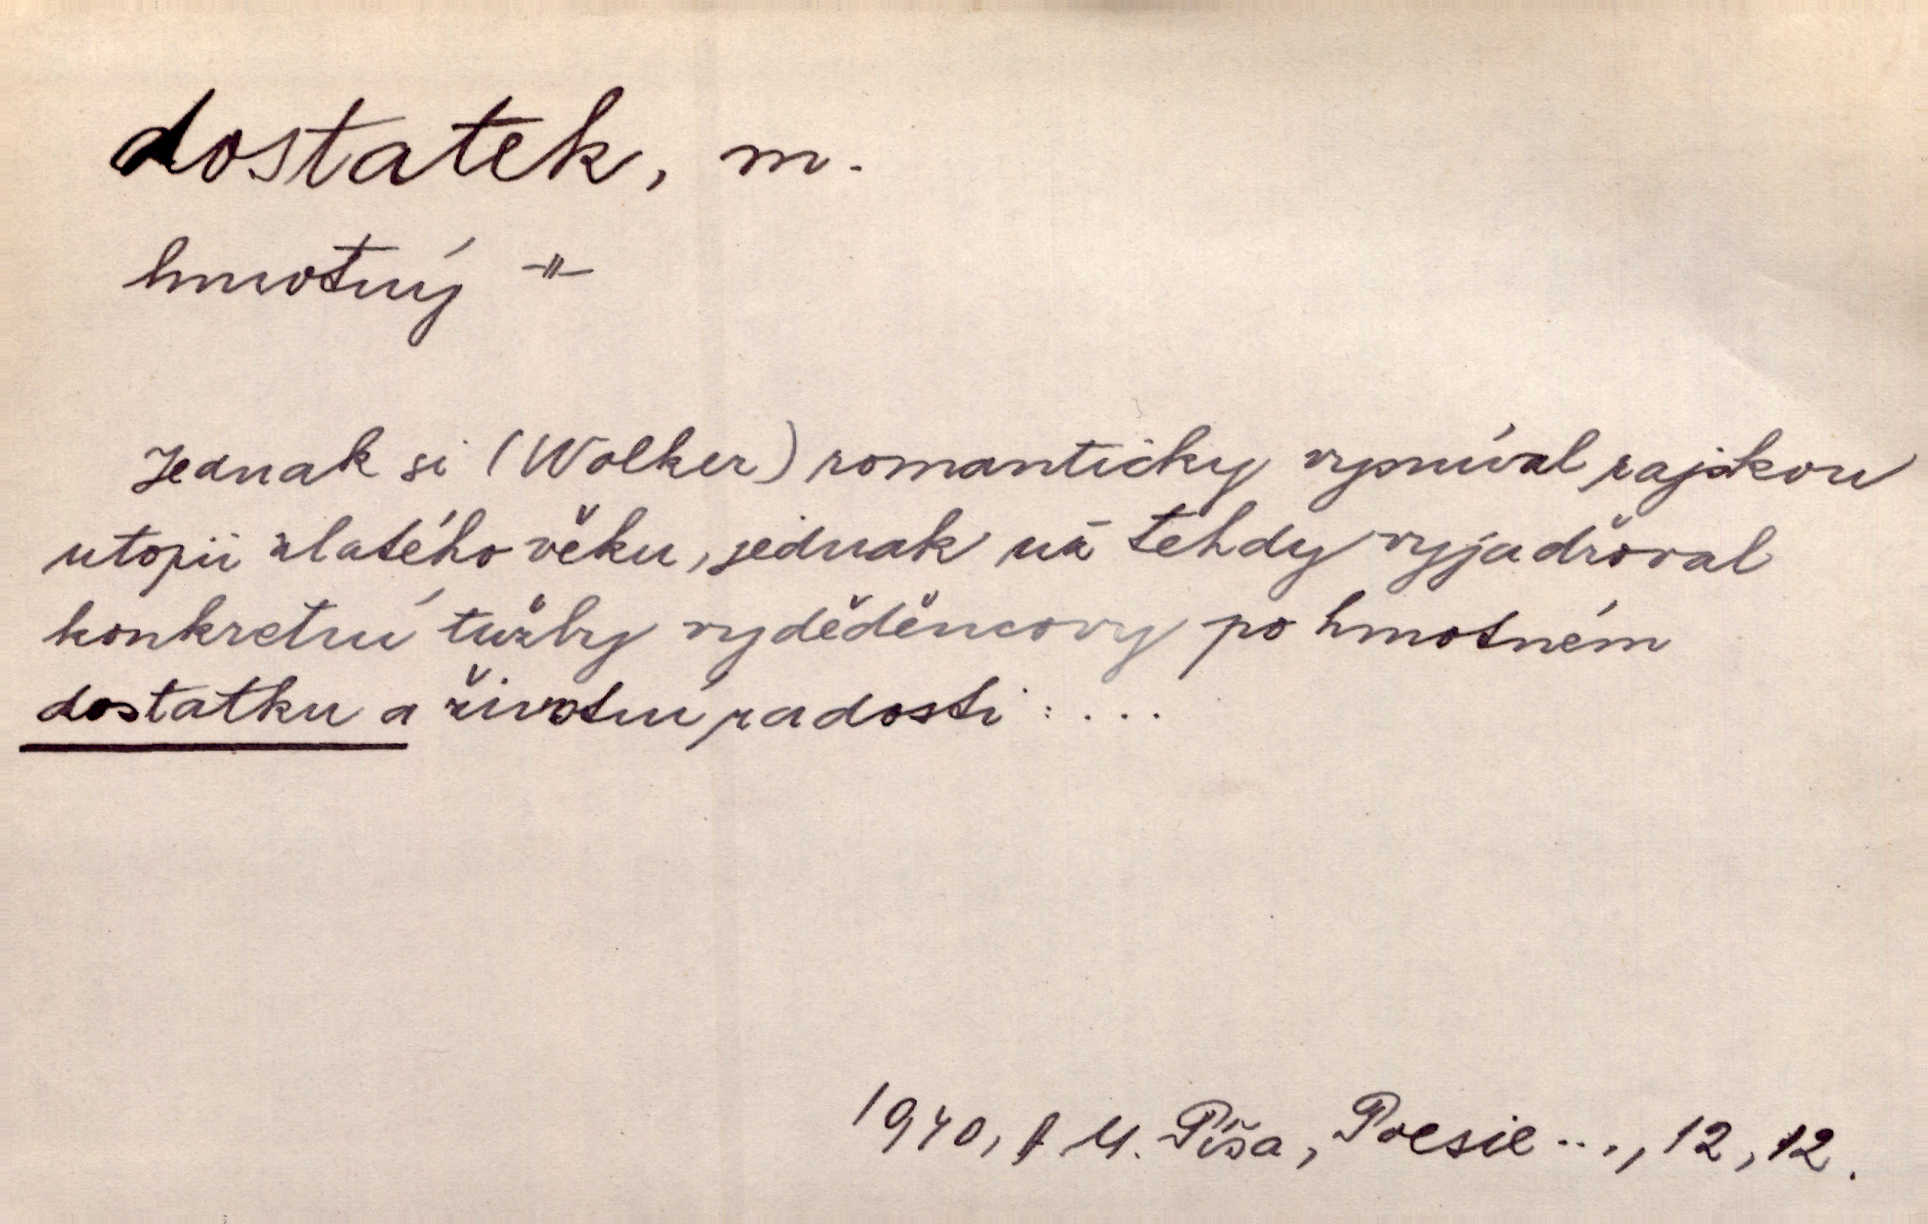 dostatek, m.
hmotný -"-
Jednak si (Wolker) romanticky vysníval rajskou
utopii zlatého věku, jednak už tehdy vyjadřoval
konkretní tužby vyděděncovy po hmotném
dostatku a životní radosti: ...
1940, A M. Píša, Poesie..., 12, 12.